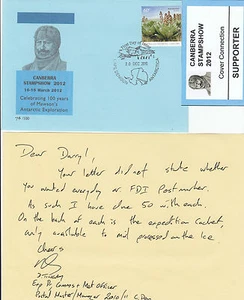 CANBERRA
STAMPSHOW 2012
16-18 March 2012
Celebrating 100 years
of Mawson's
Antarctic Exploration
CANBERRA
STAMPSHOW
2012
Cover Connection
SUPPORTER
Dear Darryl,
Your letter did not state whether
you wanted everyday or FDI Postmarker.
As such I have done 50 with each.
On the back of each is the expedition cachet,
only available to mail processed on the Ice
Cheers
Postal Master/Manager 2010/11